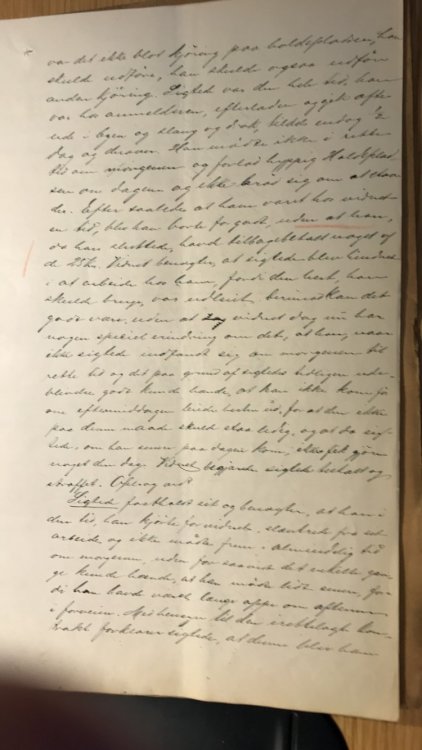 var det ikke blot kjöring paa holdepladsen, han
skulde udföre, han skulde ogsaa udföre
anden kjöring. Sigtede var den hele tid, han
var hos anmelderen, efterladen og gik ofte
ude i byen og slang og drak, tildels endog 1/2
dag og derover. Han mödte ikke i rette
tid om morgenen og forlod hyppig Holdeplad-
sen om dagen og ikke bröd sig om at
Efter saaledes at have været hos vidnet
en tid, blev han borte for godt, uden at han,
da han sluttede, havde tilbagebetalt noget af
de 25 kr. Vidnet benegter, at sigtede blev hindret
i at arbeide hos ham, fordi den hest, han
skulde bruge, var udleiet. Derimod kan det
godt være, uden at vidnet dog nu har
nogen speciel erindring om det, at han, naar
ikke sigtede indfandt sig om morgenen til
rette tid og det paa grund af sigtedes
godt kunde hænde, at han ikke kom för
om eftermiddagen leiede hesten ud, for at den ikke
paa denne maade skulde staa ledig, og at da sig-
tede, om han senere paa dagen kom, ikke fik gjöre
noget den dag. Vidnet begjærede sigtede tiltalt og
straffet. Oplæst
Sigtede fastholdt sit og benegter, at han i
den tid, han kjörte for vidnet, slentrede fra sit
arbeide og ikke mödte frem i almindelig tid
om morgenen, uden for saavidt det enkelte gan-
ge kunde hænde, at han mödte lidt senere, for-
di han havde været længe oppe om aftenen
i forveien. Med hensyn til den kon-
trakt forklarer sigtede, at denne blev ham